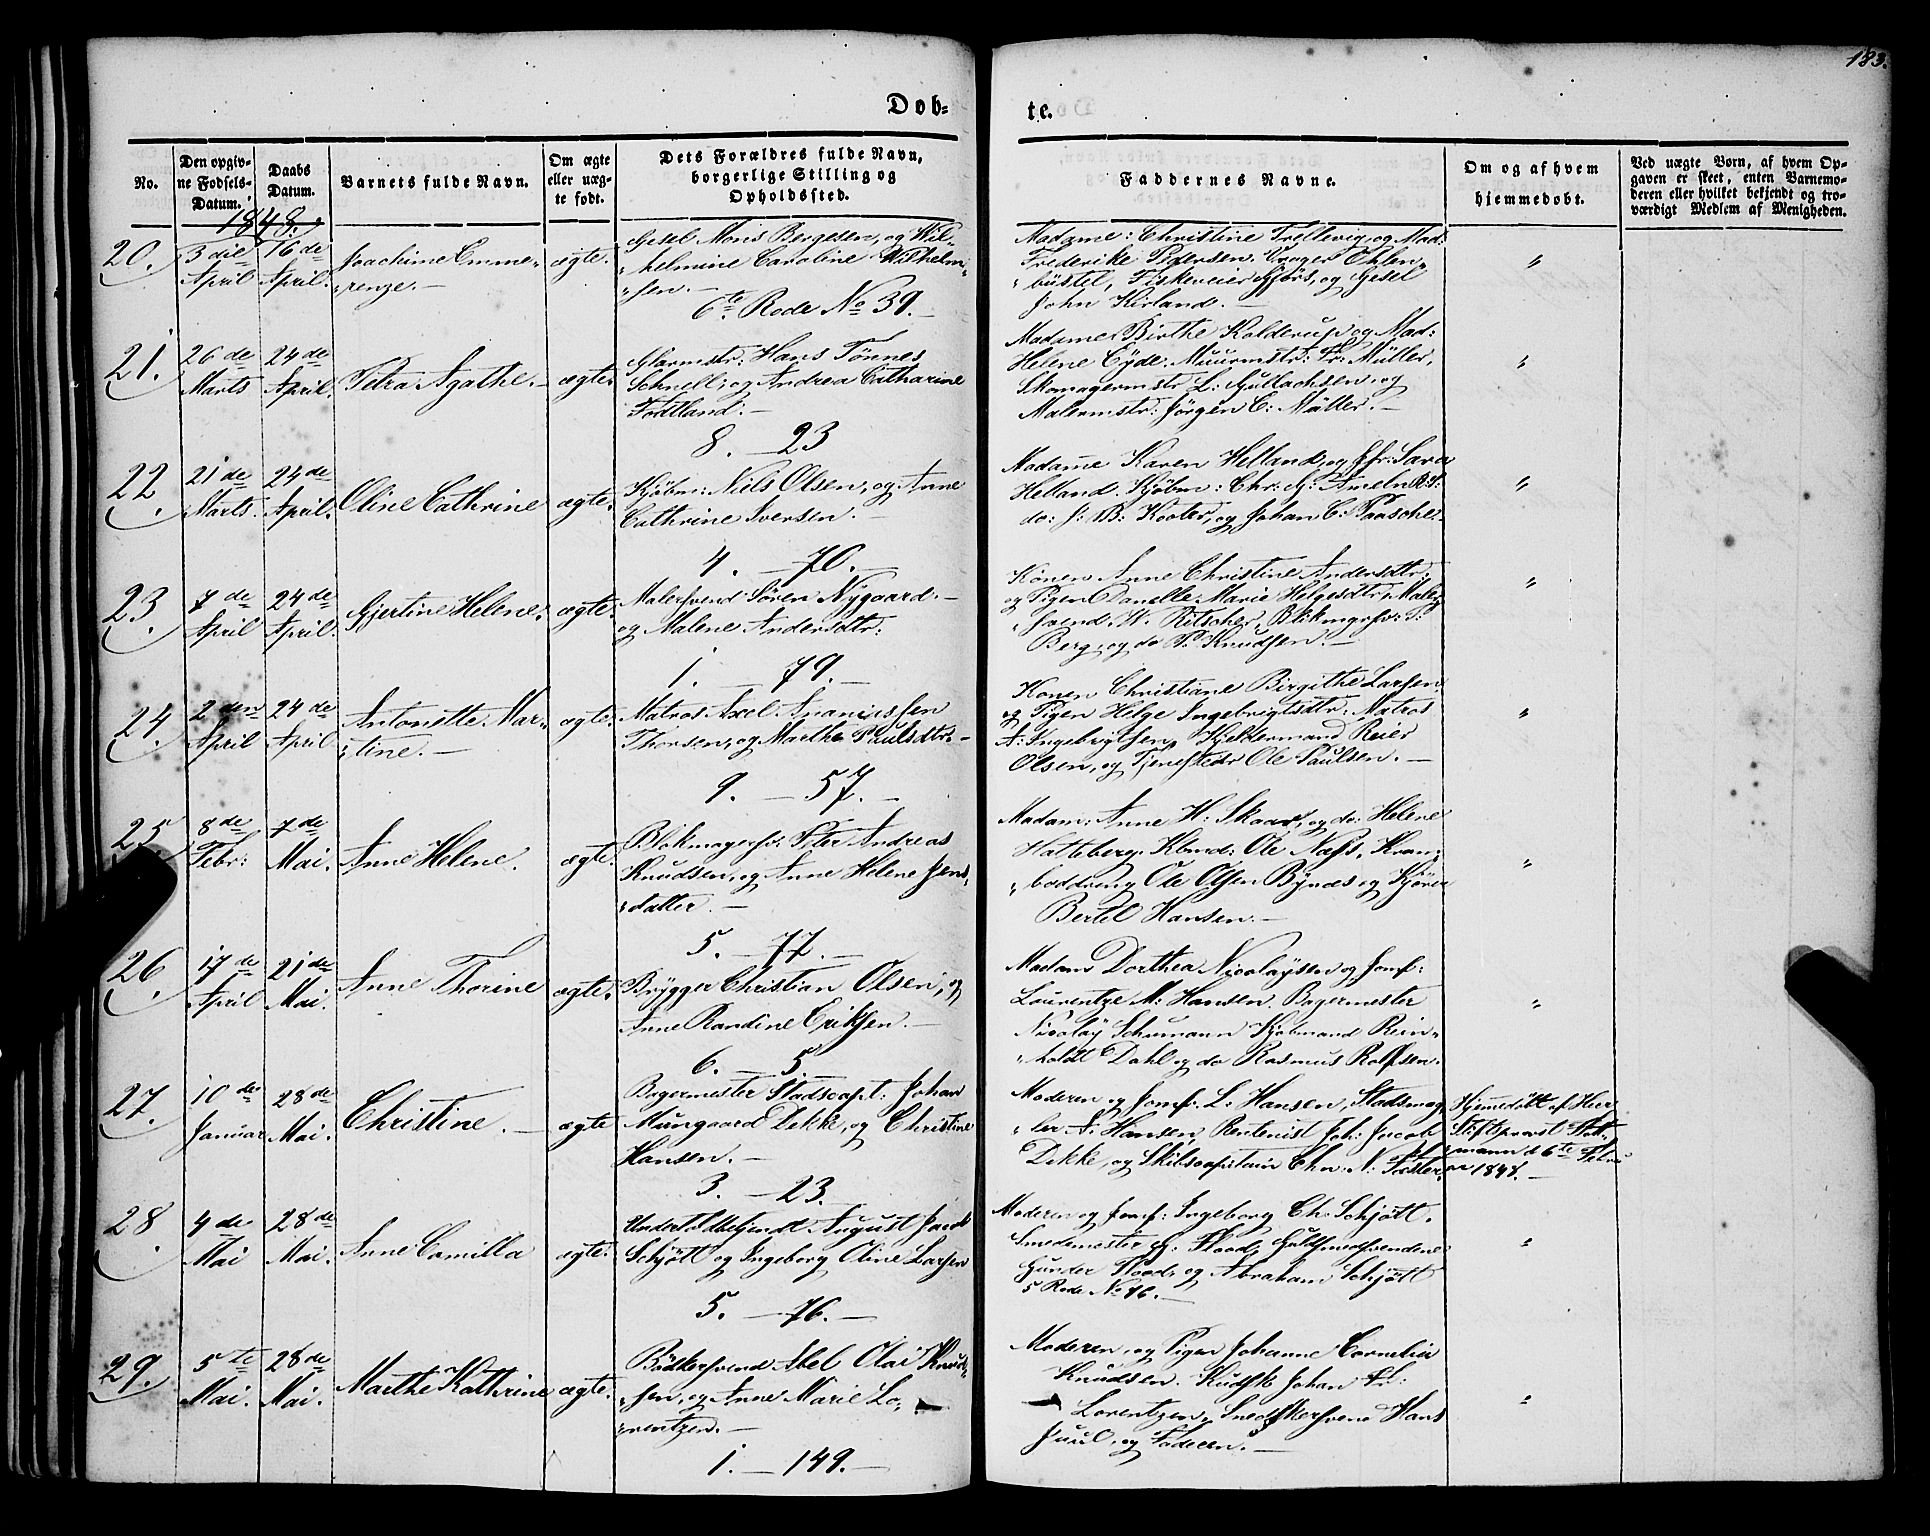 183.
Døb-
te.
No.
Den opgiv-
ne Fødsels-
Datum.
Daabs
Datum.
Barnets fulde Navn.
Om ægte
eller uæg-
te født.
Dets Forældres fulde Navn,
borgerlige Stilling og
Opholdssted.
Faddernes Navne.
Om og af hvem
hjemmedøbt.
Ved uægte Børn, af hvem Op-
gaven er skeet, enten Barnemo-
deren eller hvilket bekjendt og tro-
værdigt Medlem af Menigheden.
1848.
20.
3die
April
16de
April.
Joachime Emme-
"renze.
ægte.
Gesel Mons Bergesen, og Wil-
"helmine Caroline Wilhelm-
"sen.
6te Rode No 39.
Madame: Christine Trellevig, og Mad:
Frederike Pedersen. Vrager Ohlen-
"büstel, Fiskeveier Gjørs, og Gesel
John Kirland.
"
21.
26de
Marts
24de
April.
Petra Agathe.
ægte.
Glarmstr: Hans Tønnes
Schnell, og Andrea Catharine
Todtland.
8. 23
Madame Birthe Kolderup og Mad:
Helene Eyde. Muurmstr: Fr: Müller,
Skomagermstr L: Gullachsen, og
Malermstr: Jørgen C: Müller.
"
22.
21de
Marts.
24de
April.
Oline Cathrine
ægte.
Kjøbm: Niels Olsen, og Anne
Cathrine Iversen.
4. 70.
Madame Karen Helland, og Jfr: Sara
Helland. Kjøbm: Chr: G: Ameln
do: J: B: Kooter, og Johan C: Paasche.
"
23.
7de
April
24de
April.
Gjertine Helene.
ægte.
Malersvend Søren Nygaard
og Malene Andersdtr:
1. 79.
Konen Anne Christine Andersdtr,
og Pigen Danelle Marie Helgesdtr. Maler-
"svend W. Ritscher, Blikmgrsv: T:
Berg, og do P. Knudsen.
"
24.
2den
April
24de
April
Antonette Mar-
"tine.
ægte.
Matros Axel Ananiussen
Thorsen, og Marthe Paulsdtr.
9. 57.
Konen Christiane Birgithe Larsen
og Pigen Helge Ingebrigtsdtr. Matros
A: Ingebrigtsen, Kjeldermand Reier
Olsen, og Tjenestedr Ole Paulsen.
"
25
8de
Febr:
7de
Mai.
Anne Helene.
ægte
Blokmagersv: Peter Andreas
Knudsen, og Anne Helene Jens-
"datter.
5. 77.
Madam: Anne H: Skaar, og do: Helene
Hatteberg. Kbmd: Ole Næss, Kram-
"boddreng Ole Olsen Byndes og Kjører
Bertel Hansen.
"
26.
17de
April
21de
Mai.
Anne Thorine
ægte.
Brygger Christian Olsen, og
Anne Randine Eriksen.
6. 5.
Madam Dorthea Nicolaysen og Jomf:
Laurentze M: Hansen. Bagermester
Nicolay Schumann Kjøbmand Rein-
"holdt Dahl og do Rasmus Rolfsen.
"
27.
10de
Januar
28de
Mai.
Christine.
ægte
Bagermester Stadscapt: Johan
Mungaard Dekke, og Christine
Hansen.
3. 23.
Moderen og Jomf: L: Hansen, Stadsmæg-
"ler A: Hansen, Rentenist Joh: Jacob
Dekke, og Skibscapitain Chr: N: Paster
Hjemmedøbt af Herr
Stiftsprovst
mann d 6te Febru
ar 1848.
28
4de
Mai
28de
Mai.
Anne Camilla
ægte.
Undertoldbetjendt August Jacob
Schjøtt og Ingeborg Oline Larsen
5. 76.
Moderen og Jomf: Ingeborg Ch: Schjøtt.
Smedemester G: Flood, Guldsmedsvendene
Gunder Flood, og Abraham Schjøtt
5 Rode No 76.
"
29.
5te
Mai.
28de
Mai.
Marthe Kathrine
ægte.
Bødkersvend Abel Olai Knud-
"sen, og Anne Marie Lo-
"rentzen.
1. 149.
Moderen, og Pigen Johanne Cornelia
Knudsen. Kudsk Johan Fr:
Lorentzen, Snedkersvend Hans
Juul, og Faderen.
"